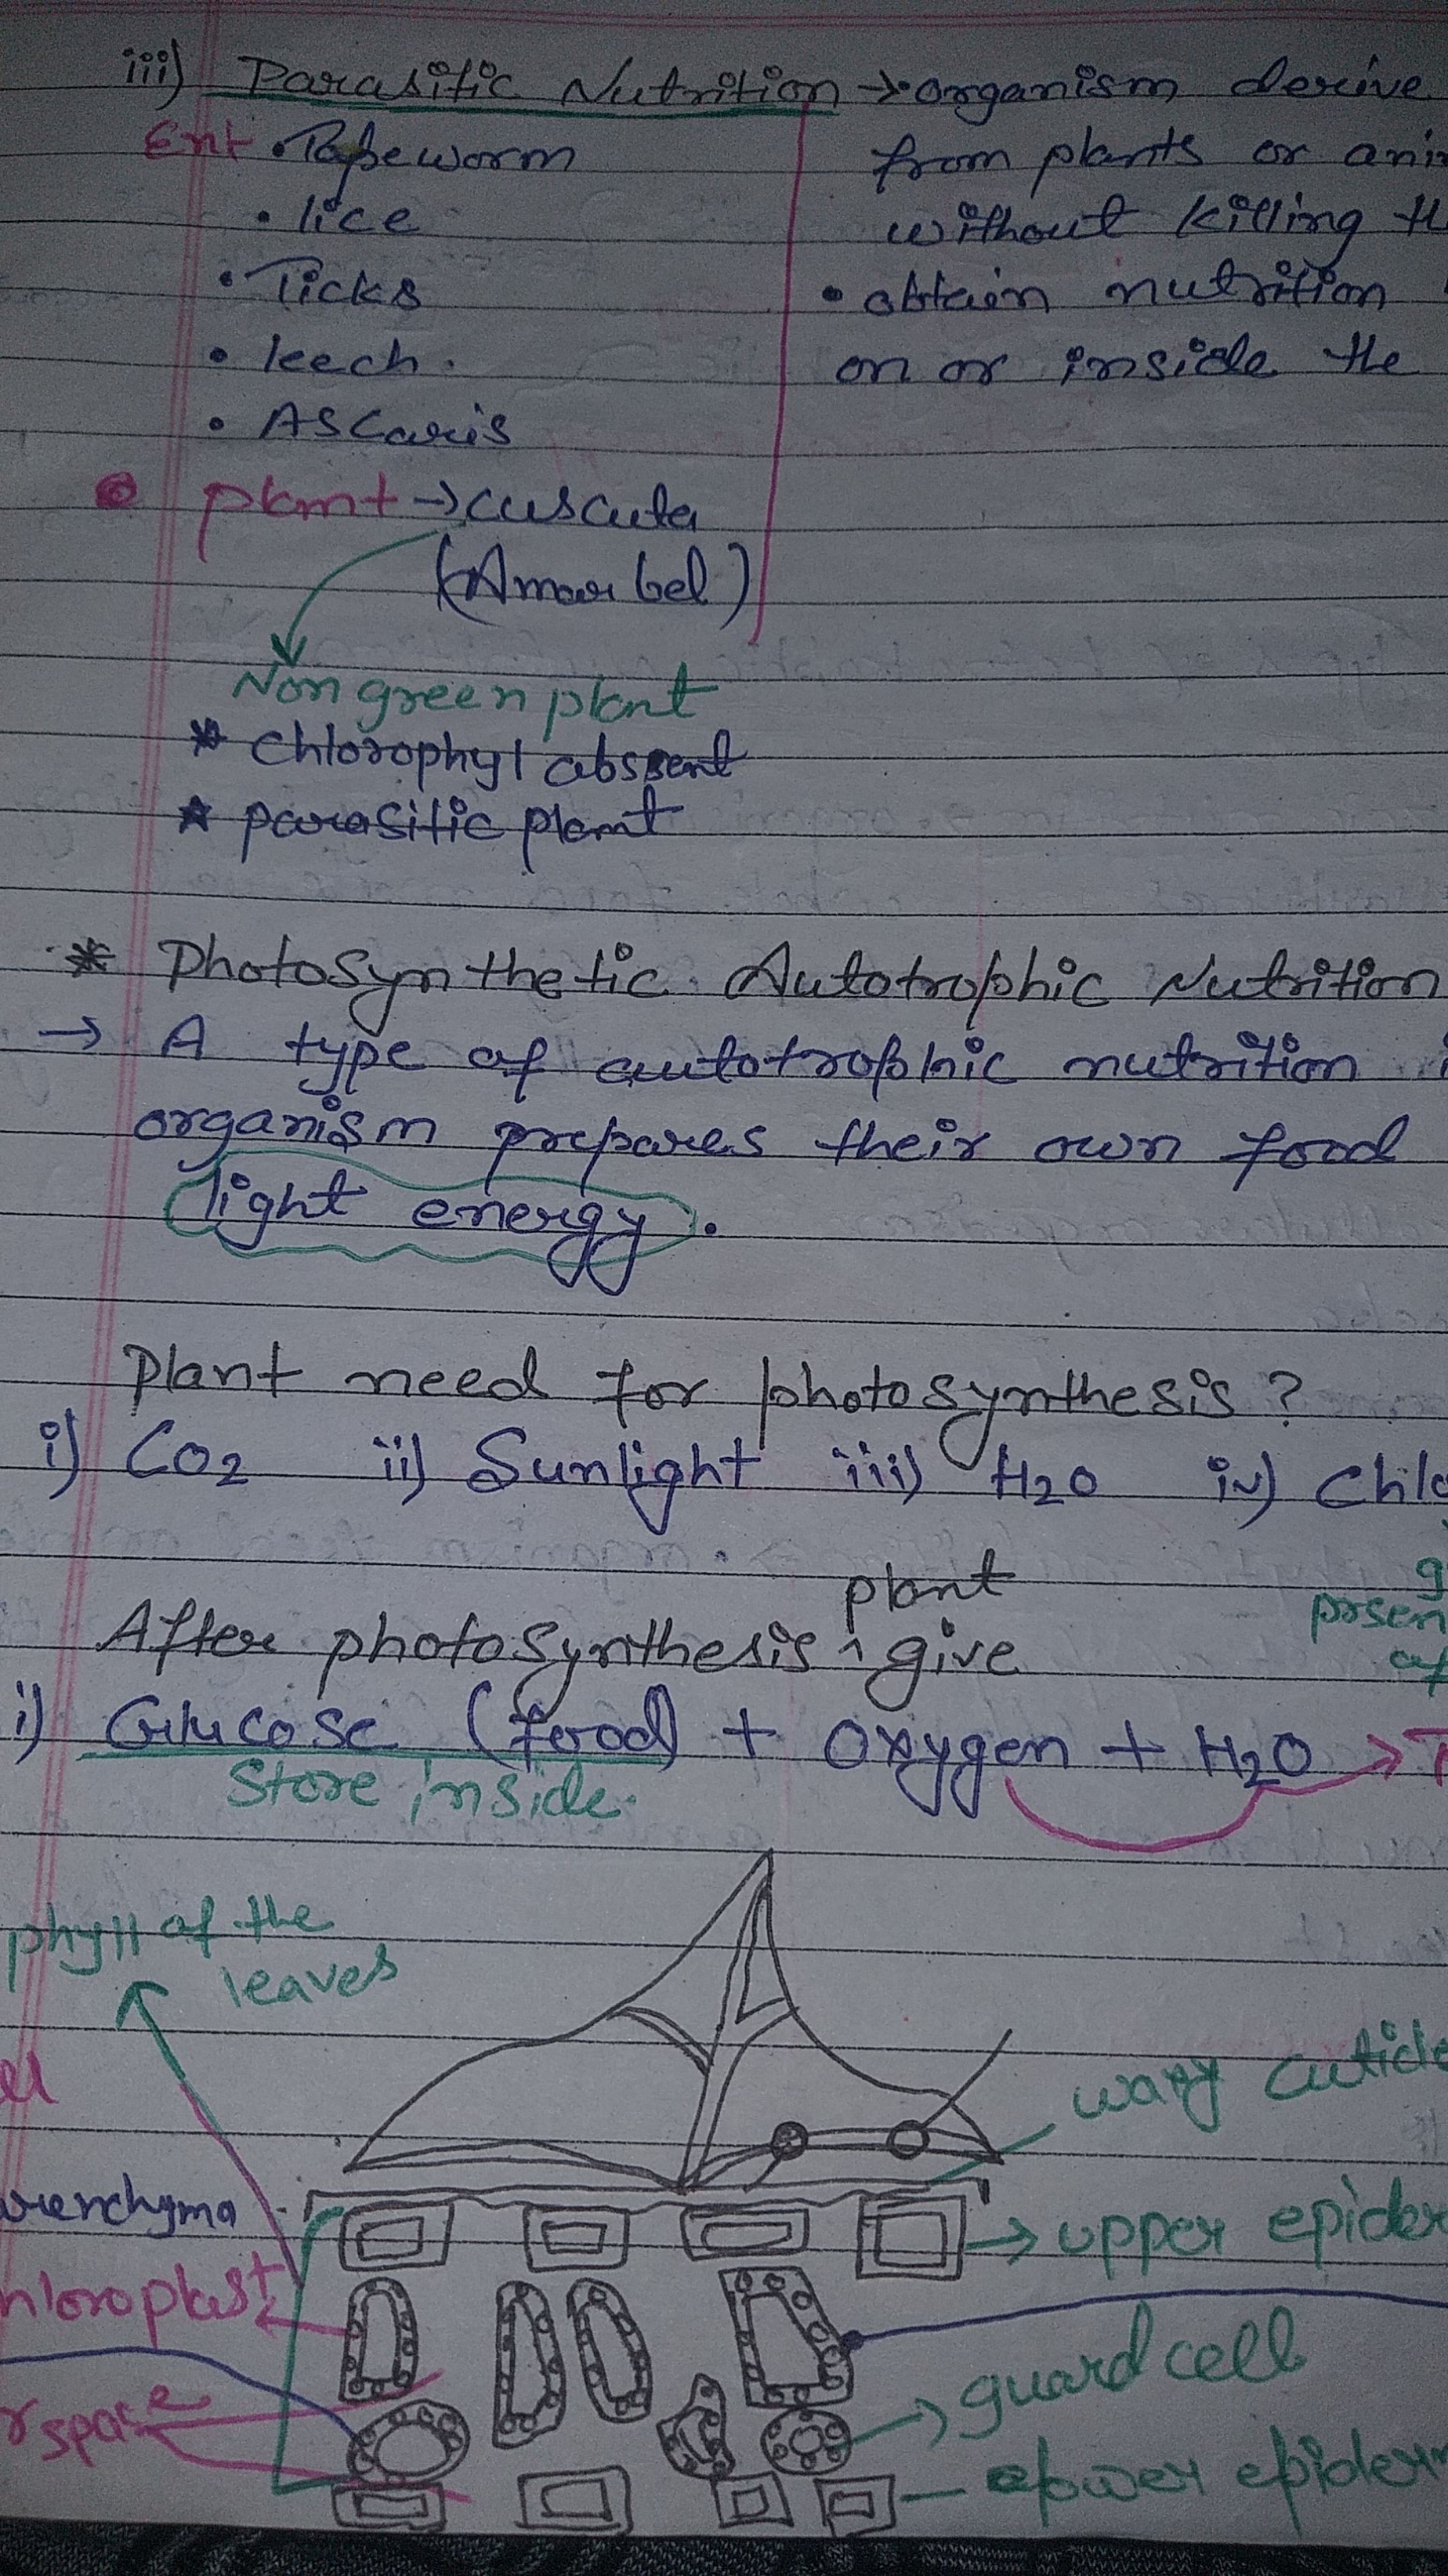 iii) Parasitic Nutrition → • organism derive
Ent • Tapeworm
from plants or ani
• lice
without killing th
• Ticks
• obtain nutrition
• leech.
on or inside the
• AScaris
plant → cuscuta
(Amar bel)
Non green plant
* chlorophyl abssent
* parasitic plant
* Photosynthetic Autotrophic Nutrition
→ A type of autotrophic nutrition i
organism prepares their own food
light energy.
Plant need for photosynthesis?
i) CO2 ii) Sunlight iii) H2O iv) Chlo
g
prsen
of
plant
After photosynthesis ^ give
i) Glucose (food) + Oxygen + H2O → T
Store inside.
phyll of the
leaves
ell
waxy cuticle
arenchyma
→ upper epider
hloroplast
guard cell
r space
lower epider